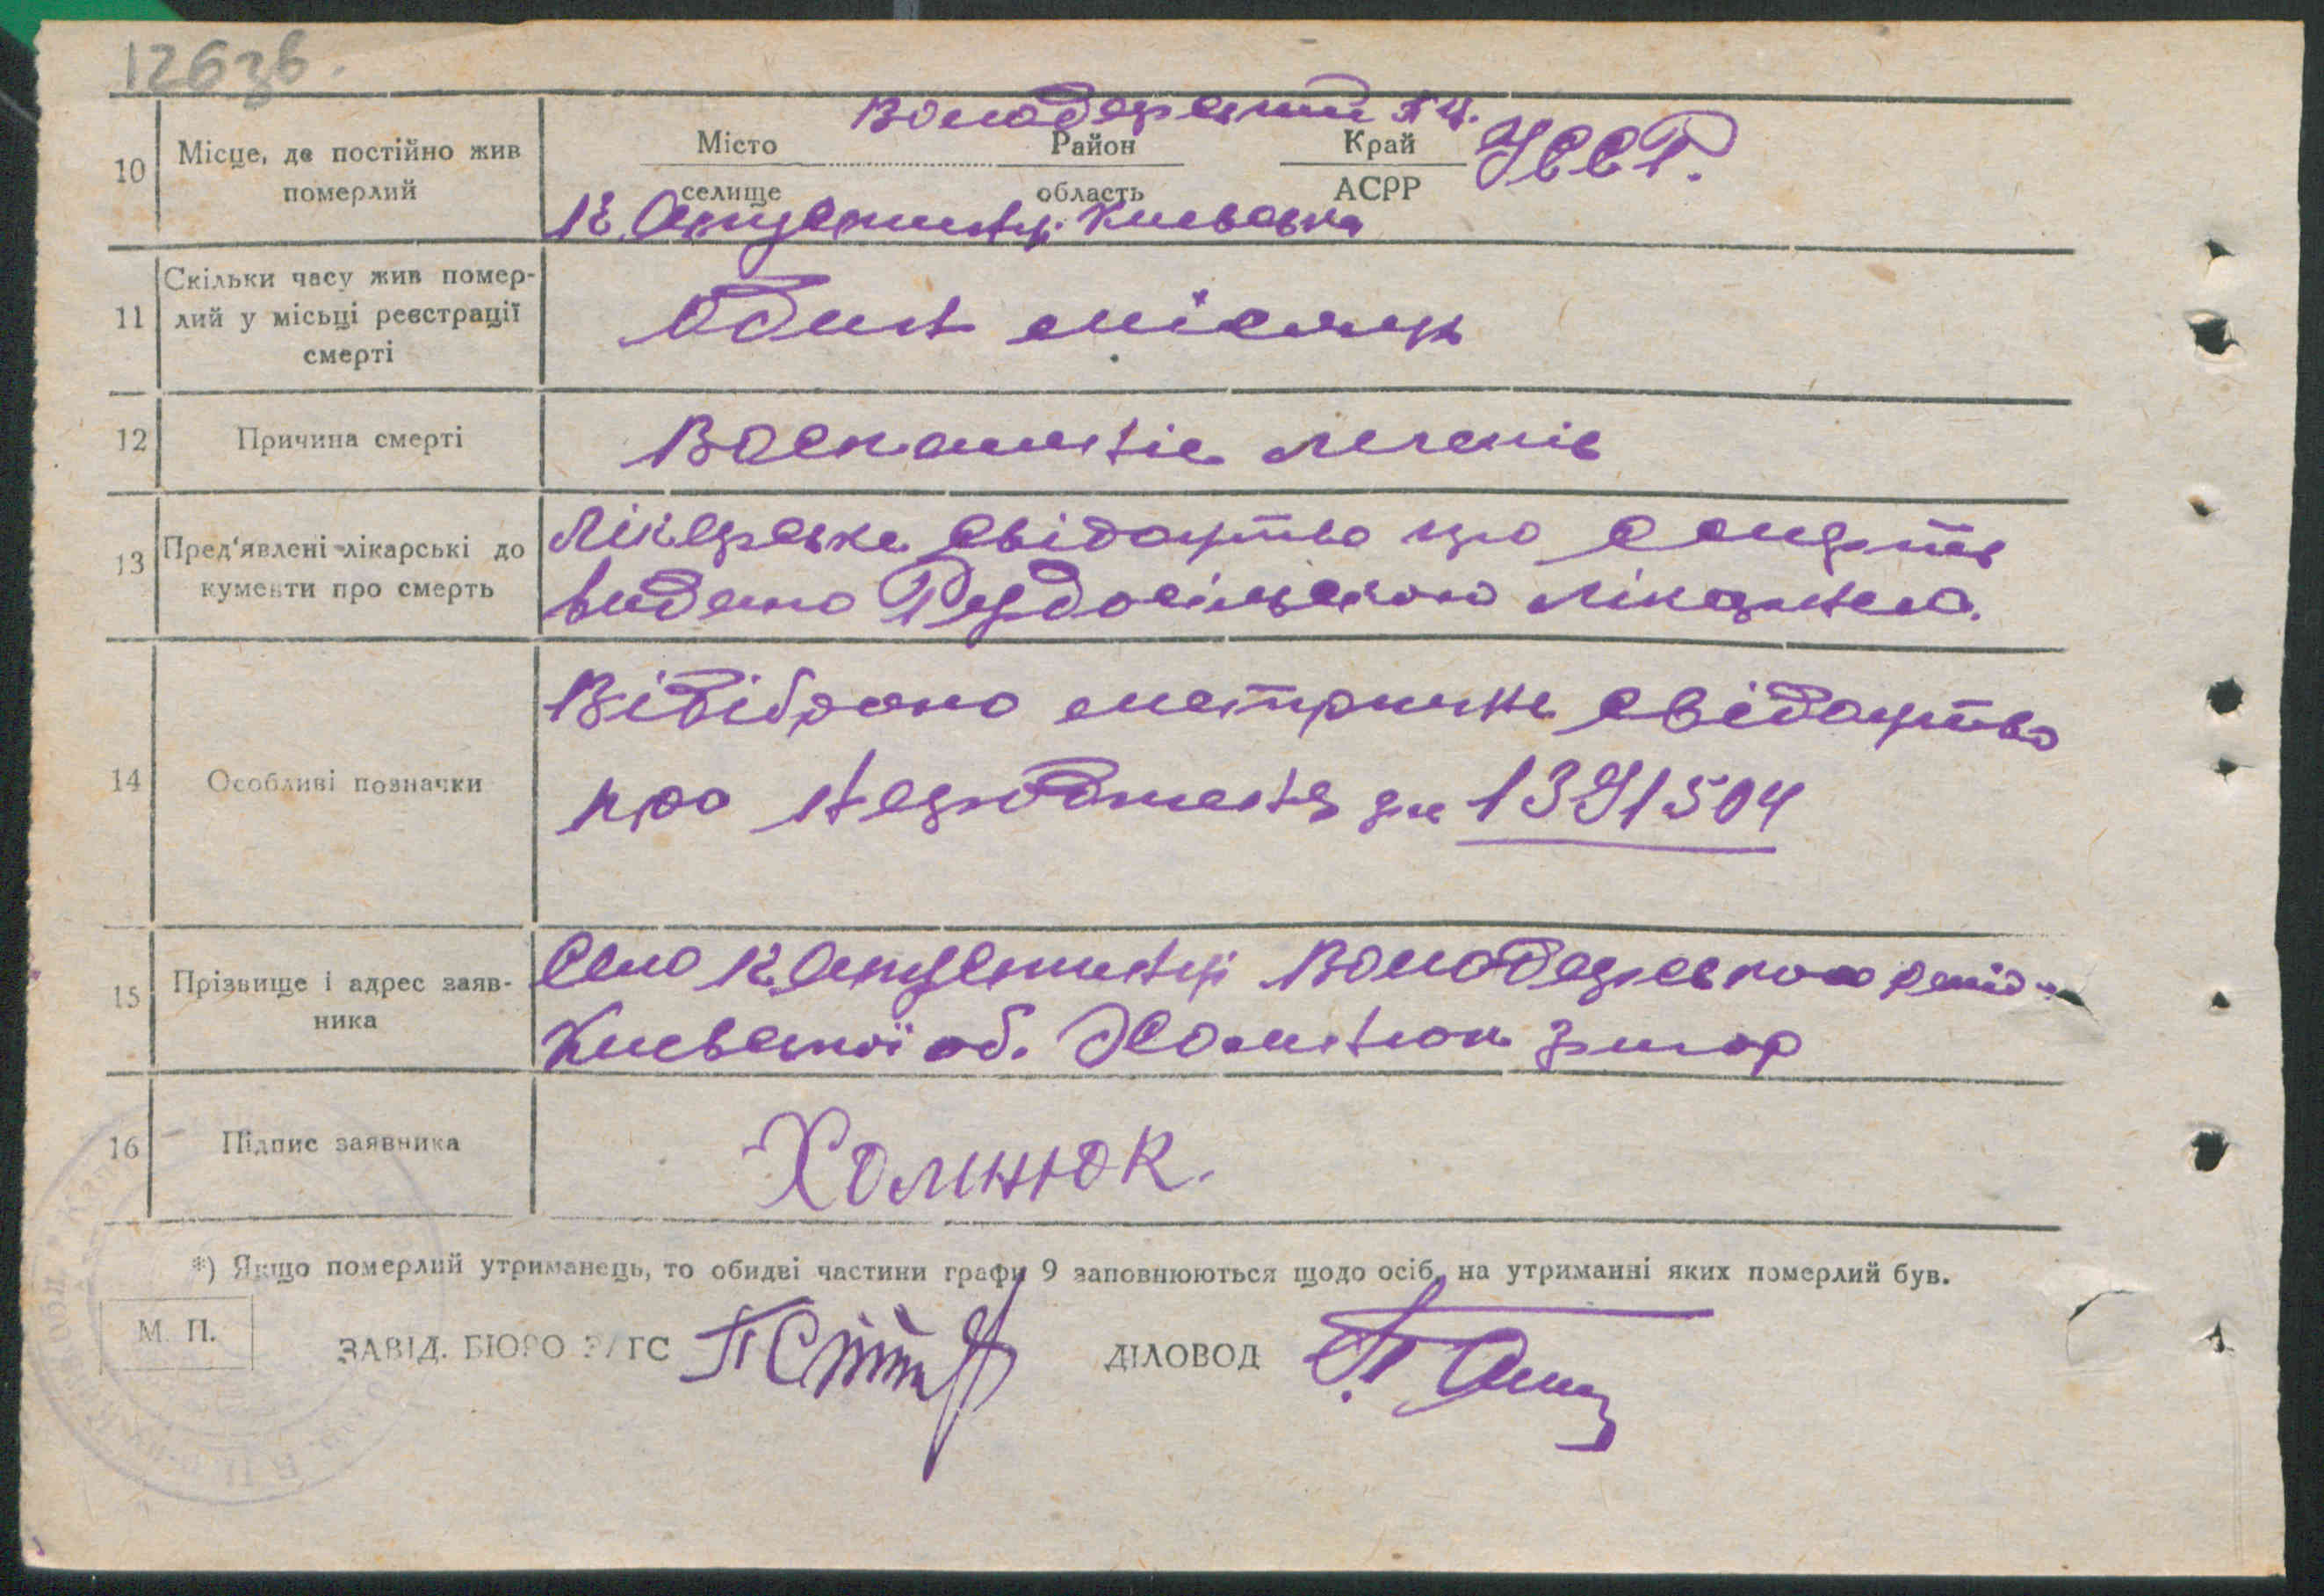 126зв.
Володарський
10 Місце, де постійно жив померлий
Місто Район Край УССР.
селище область АСРР
Капустинці Київська
11 Скільки часу жив помер-
лий у місьці реєстрації
смерті
Один місяць
12 Причина смерті
Воспаленіе легенів
13 Пред'явлені лікарські до
кументи про смерть
Лікарське свідоцтво про смерть
видано Рудосільською лікарнею.
14 Особливі позначки
Відібрано метричне свідоцтво
про народження за 1391504
15 Прізвище і адрес заяв-
ника
Село Капустинці Володарського району
Київської об. Хоминюк
16 Підпис заявника
Хоминюк.
*) Якщо померлий утриманець, то обидві частини графи 9 заповнюються щодо осіб, на утриманні яких померлий був.
М. П.
ЗАВІД. БЮРО ЗАГС ДІЛОВОД